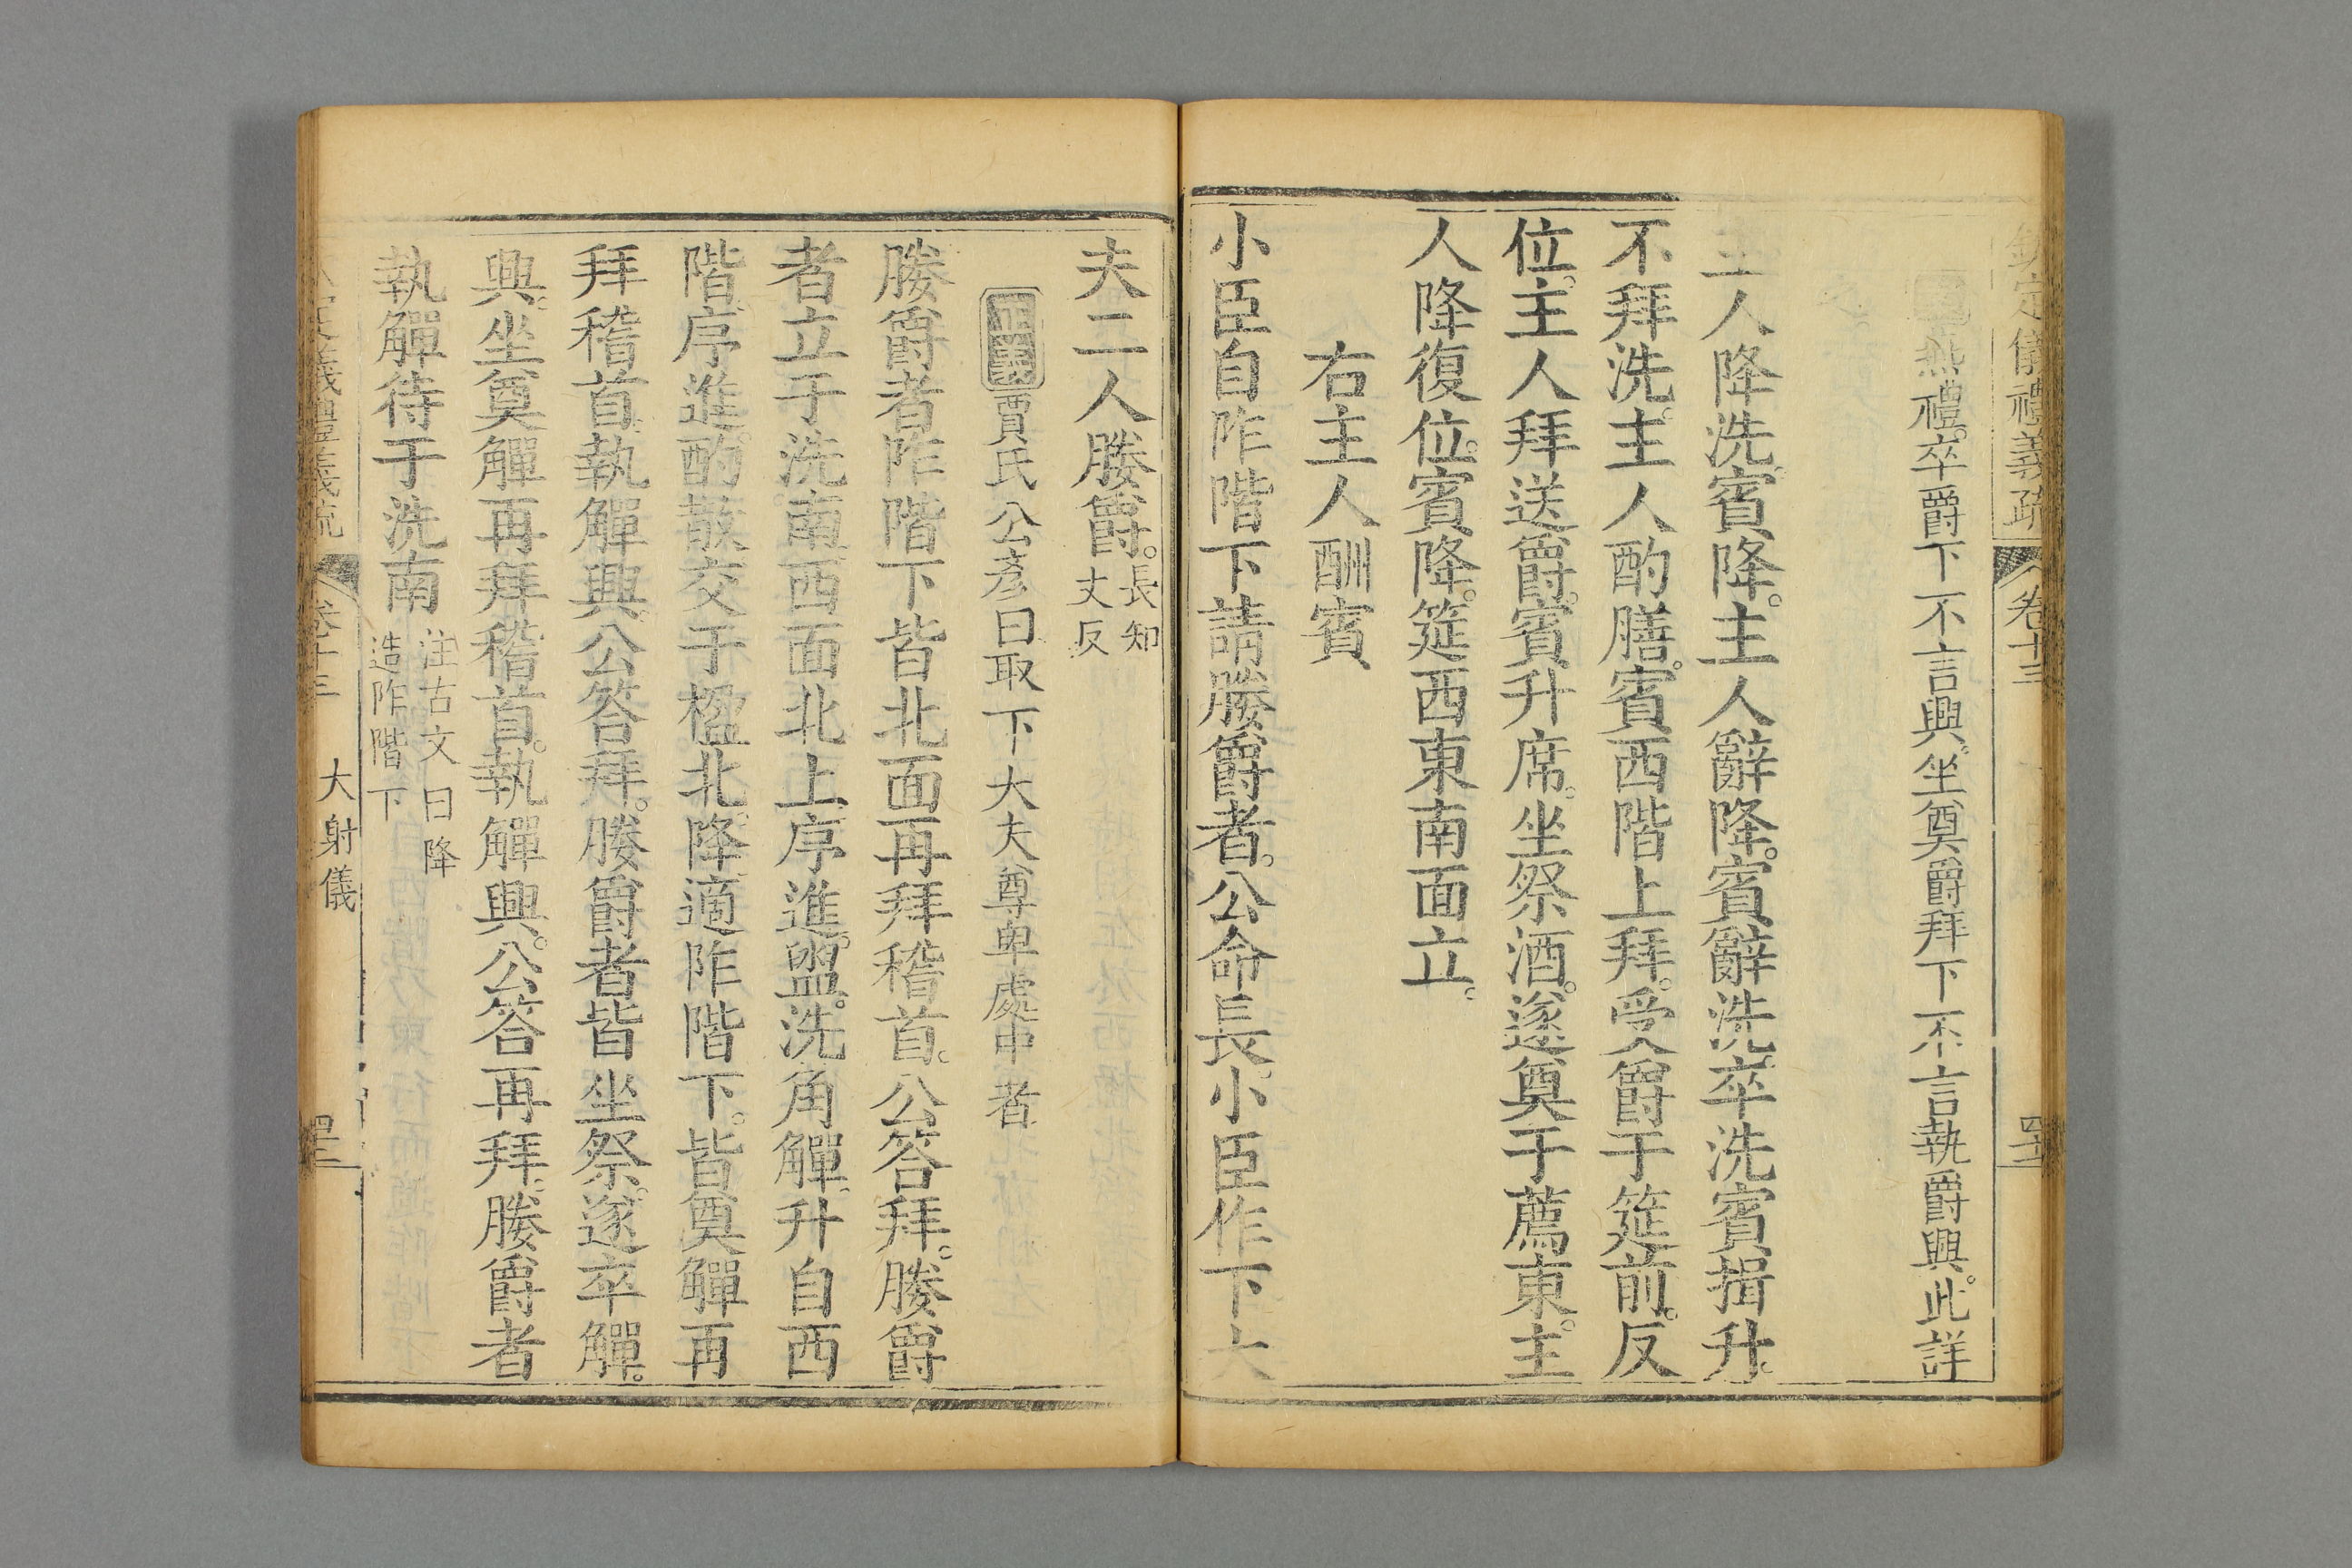 欽定儀禮義疏 卷十三
燕禮。卒爵下不言興。坐奠爵拜下不言執爵興。此詳
之。
主人降洗。賓降。主人辭降。賓辭洗。卒洗。賓揖升。
不拜洗。主人酌膳。賓西階上拜。受爵于筵前。反
位。主人拜送爵。賓升席。坐祭酒。遂奠于薦東。主
人降復位。賓降。筵西東南面立。
右主人酬賓
小臣自阼階下請媵爵者。公命長。小臣作下大
夫二人媵爵。長知丈反
正義 賈氏公彥曰取下大夫尊卑處中者
媵爵者阼階下皆北面再拜稽首。公答拜。媵爵
者立于洗南。西面北上序進。盥。洗角觶。升自西
階。序進。酌散交于楹北。降適阼階下。皆奠觶再
拜稽首。執觶興。公答拜。媵爵者皆坐祭。遂卒觶。
興。坐奠觶再拜稽首。執觶興。公答再拜。媵爵者
執觶待于洗南 注古文曰降造阼階下
義禮義疏 卷十三 大射儀